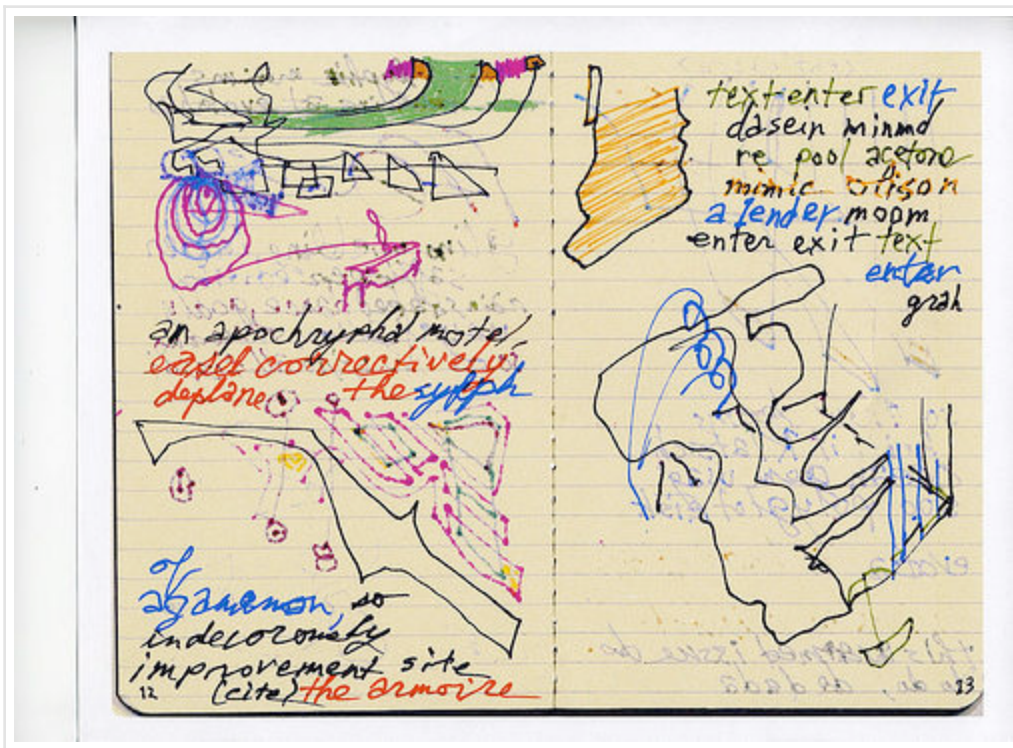 an apochryphal motel,
easel correctively
deplane the sylph
of
agamemnon, so
indecorously
improvement site
(cite) the armoire
12
text enter exit
dasein minmd
re pool acetone
mimic origon
a lender moom
enter exit text
enter
grah
13